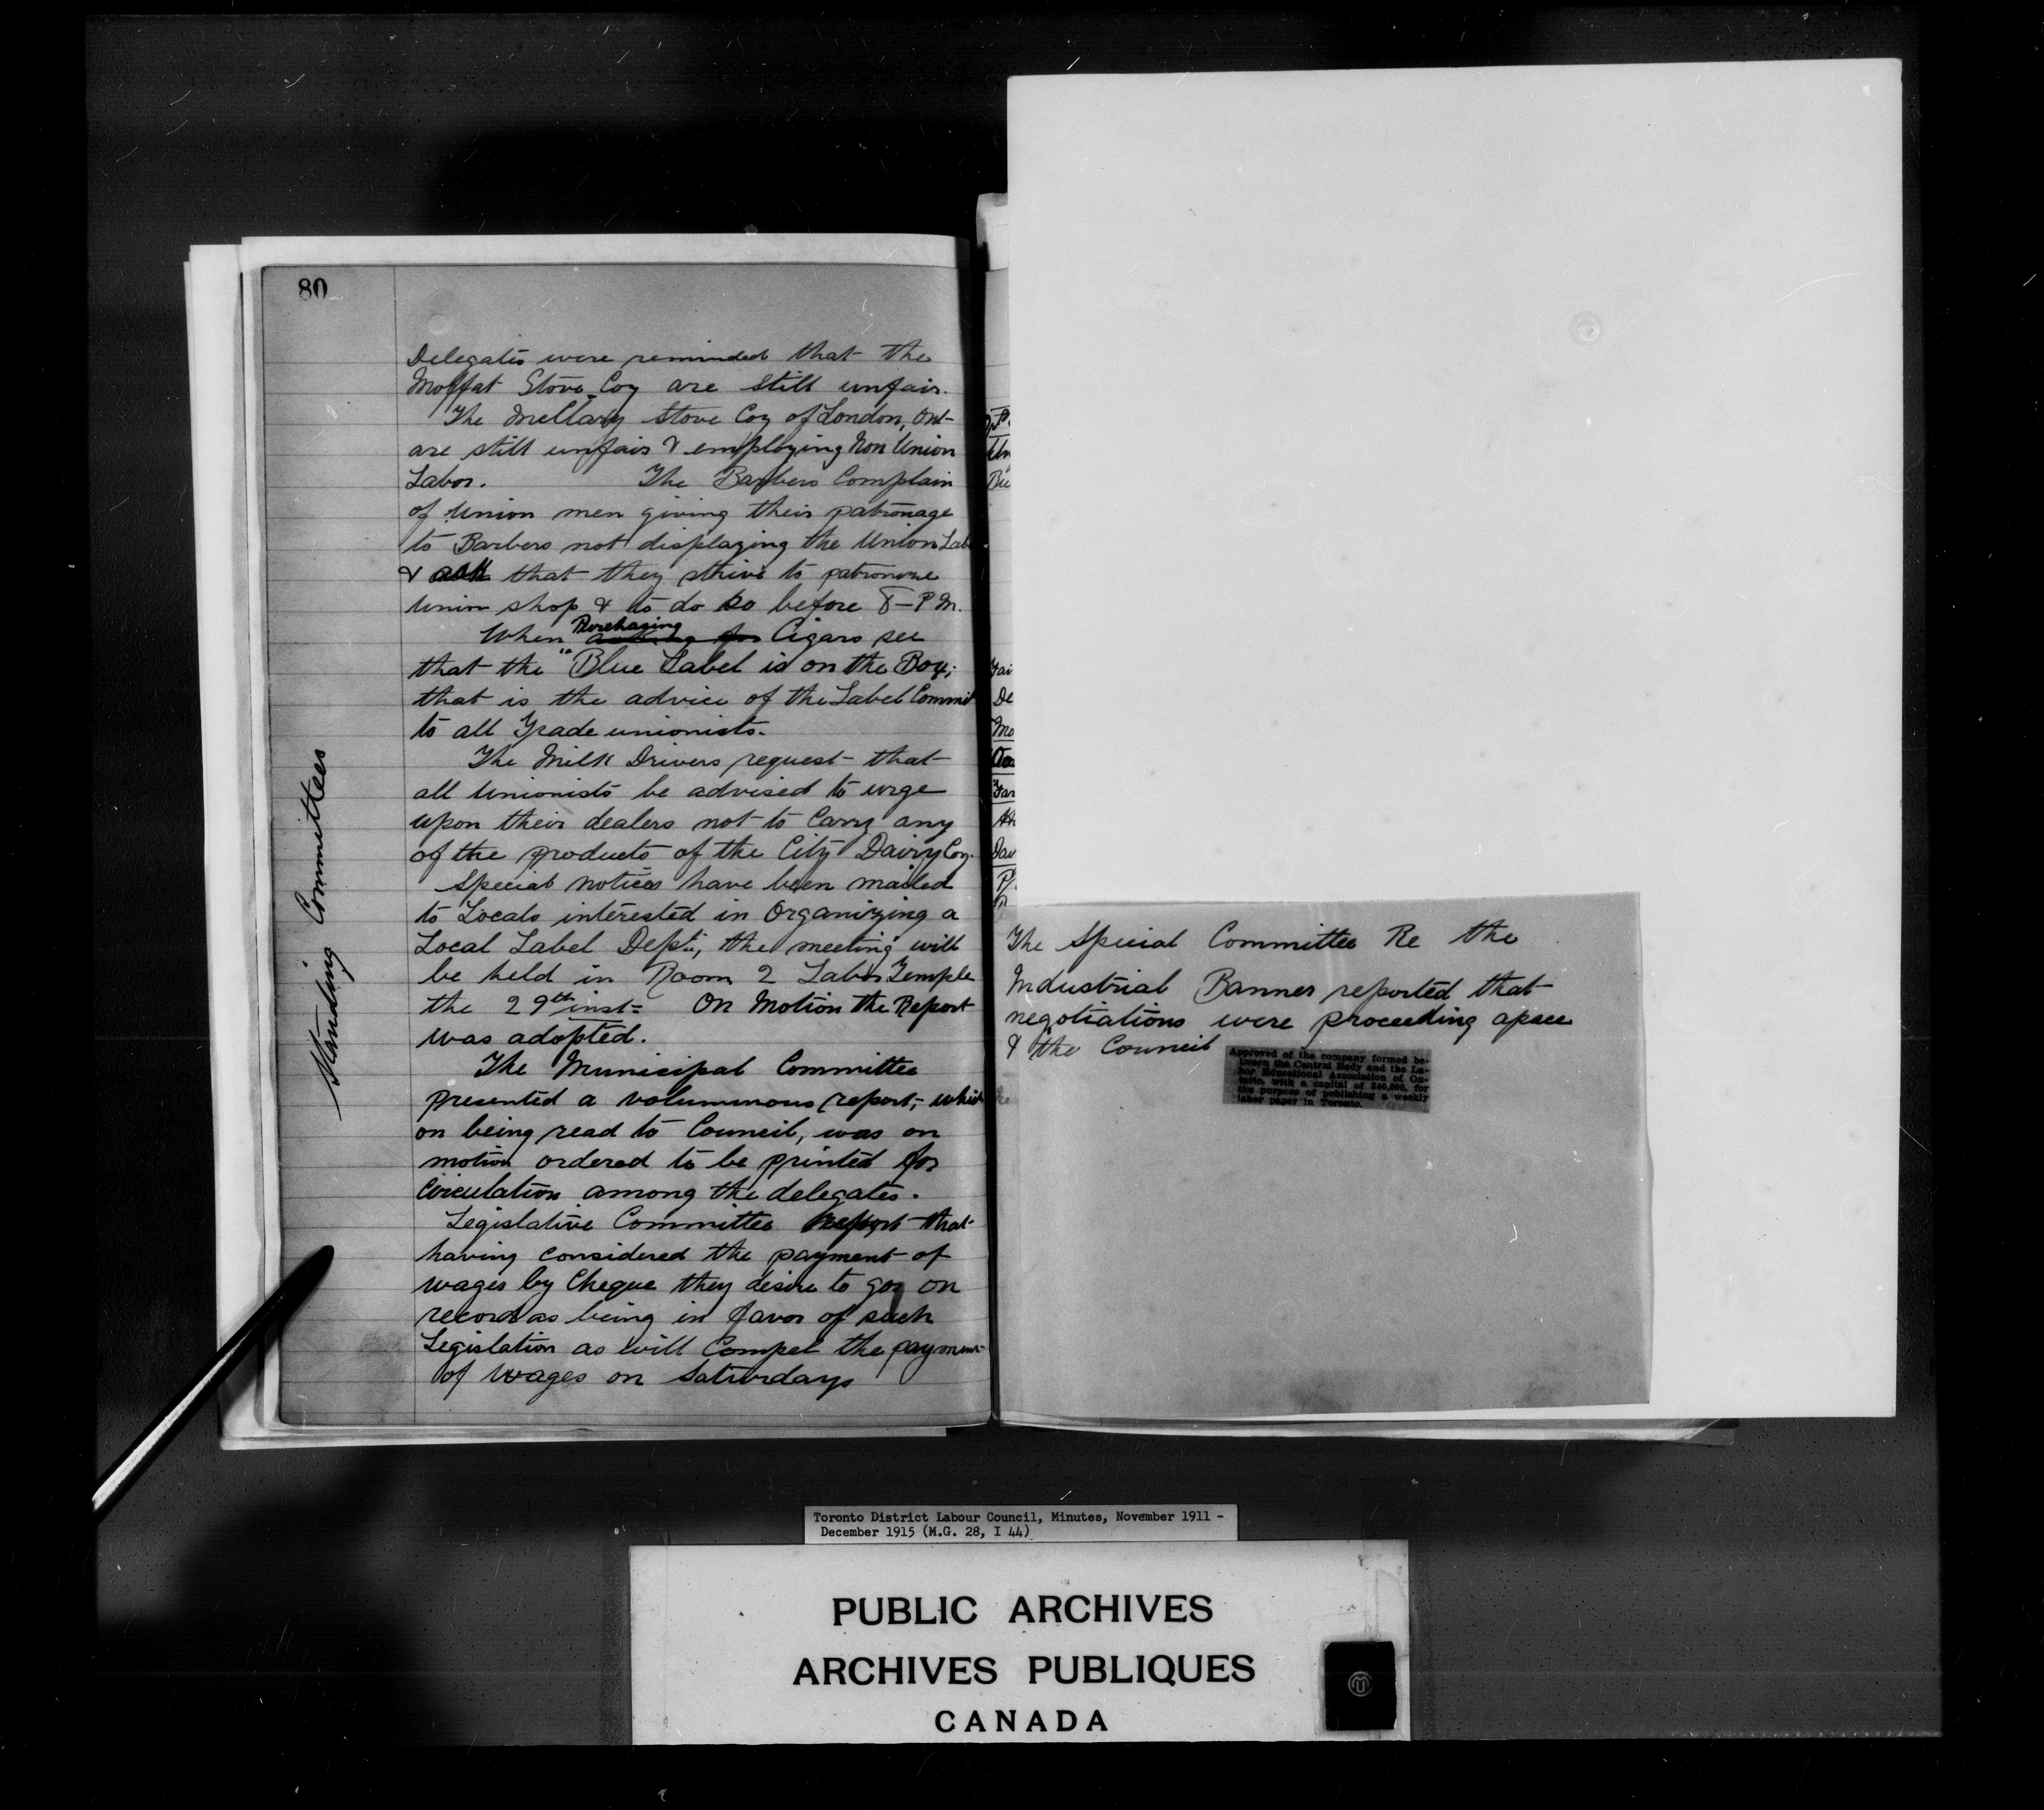 80
Standing Committees
Delegates were reminded that the
Moffat Stove Coy are still unfair.
The McClary Stove Coy of London, Ont
are still unfair & employing Non Union
Labor. The Barbers Complain
of Union men giving their patronage
to Barbers not displaying the Union Lab
& ask that they strive to patronize
Union shop & to do so before 8-P.M.
Purchasing
When asking for Cigars see
that the "Blue Label is on the Box;
that is the advice of the Label Commit
to all Trade unionists.
The Milk Drivers request that
all Unionists be advised to urge
upon their dealers not to Carry any
of the products of the City Dairy Coy.
Special notices have been mailed
to Locals interested in Organizing a
Local Label Dept; the meeting will
be held in Room 2 Labor Temple
the 29th inst= On Motion the Report
was adopted.
The Municipal Committee
presented a voluminous report; which
on being read to Council, was on
motion ordered to be printed for
Circulation among the delegates.
Legislative Committee Report that
having considered the payment of
wages by Cheque they desire to go on
record as being in favor of such
Legislation as will Compel the payment
of Wages on Saturdays
The Special Committee Re the
Industrial Banner reported that
negotiations were proceeding apace
& the Council
Approved of the company formed be-
tween the Central Body and the La-
bor Educational Association of On-
tario, with a capital of $40,000, for
the purpose of publishing a weekly
labor paper in Toronto.
Toronto District Labour Council, Minutes, November 1911 -
December 1915 (M.G. 28, I 44)
PUBLIC ARCHIVES
ARCHIVES PUBLIQUES
CANADA